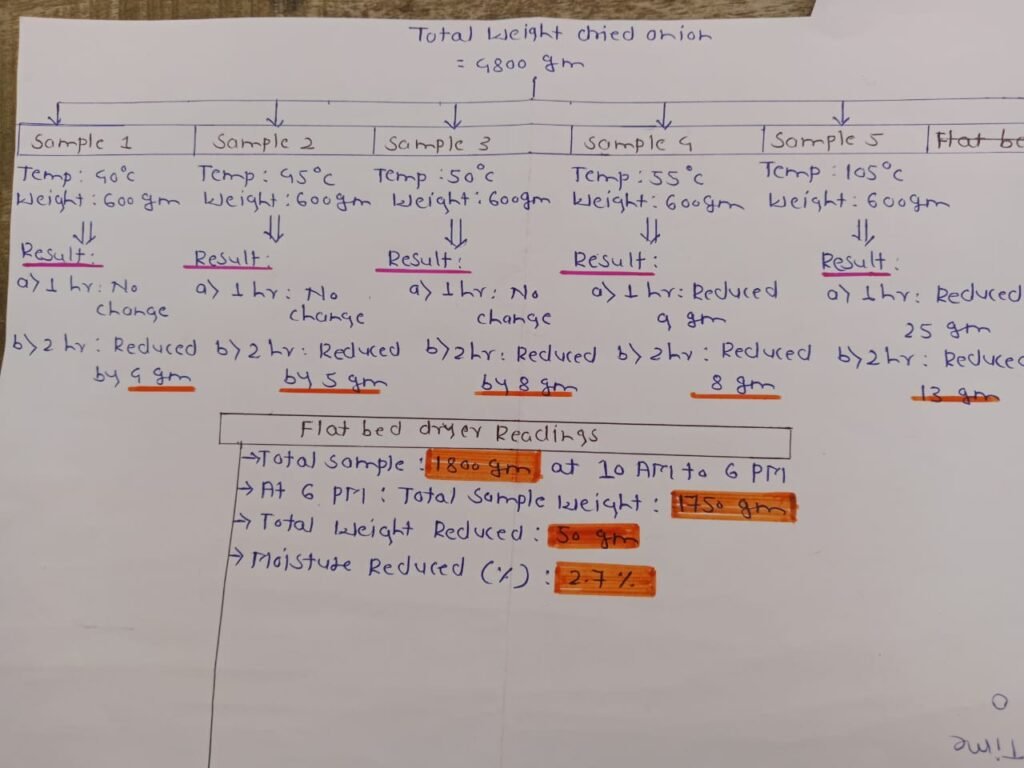 Total Weight dried onion
= 4800 gm
Sample 1 Sample 2 Sample 3 Sample 4 Sample 5 Flat be
Temp : 40°c Temp : 45°c Temp : 50°c Temp : 55°c Temp : 105°c
Weight : 600 gm Weight : 600gm Weight : 600gm Weight : 600gm Weight : 600gm
Result : Result : Result : Result : Result :
a) 1 hr : No a) 1 hr : No a) 1 hr : No a) 1 hr : Reduced a) 1 hr : Reduced
change change change 4 gm 25 gm
b) 2 hr : Reduced b) 2 hr : Reduced b) 2 hr : Reduced b) 2 hr : Reduced b) 2 hr : Reduced
by 4 gm by 5 gm by 8 gm 8 gm 13 gm
Flat bed dryer Readings
→ Total sample : 1800 gm at 10 AM to 6 PM
→ At 6 PM : Total Sample Weight : 1750 gm
→ Total Weight Reduced : 50 gm
→ Moisture Reduced (%) : 2.7 %
0
Time